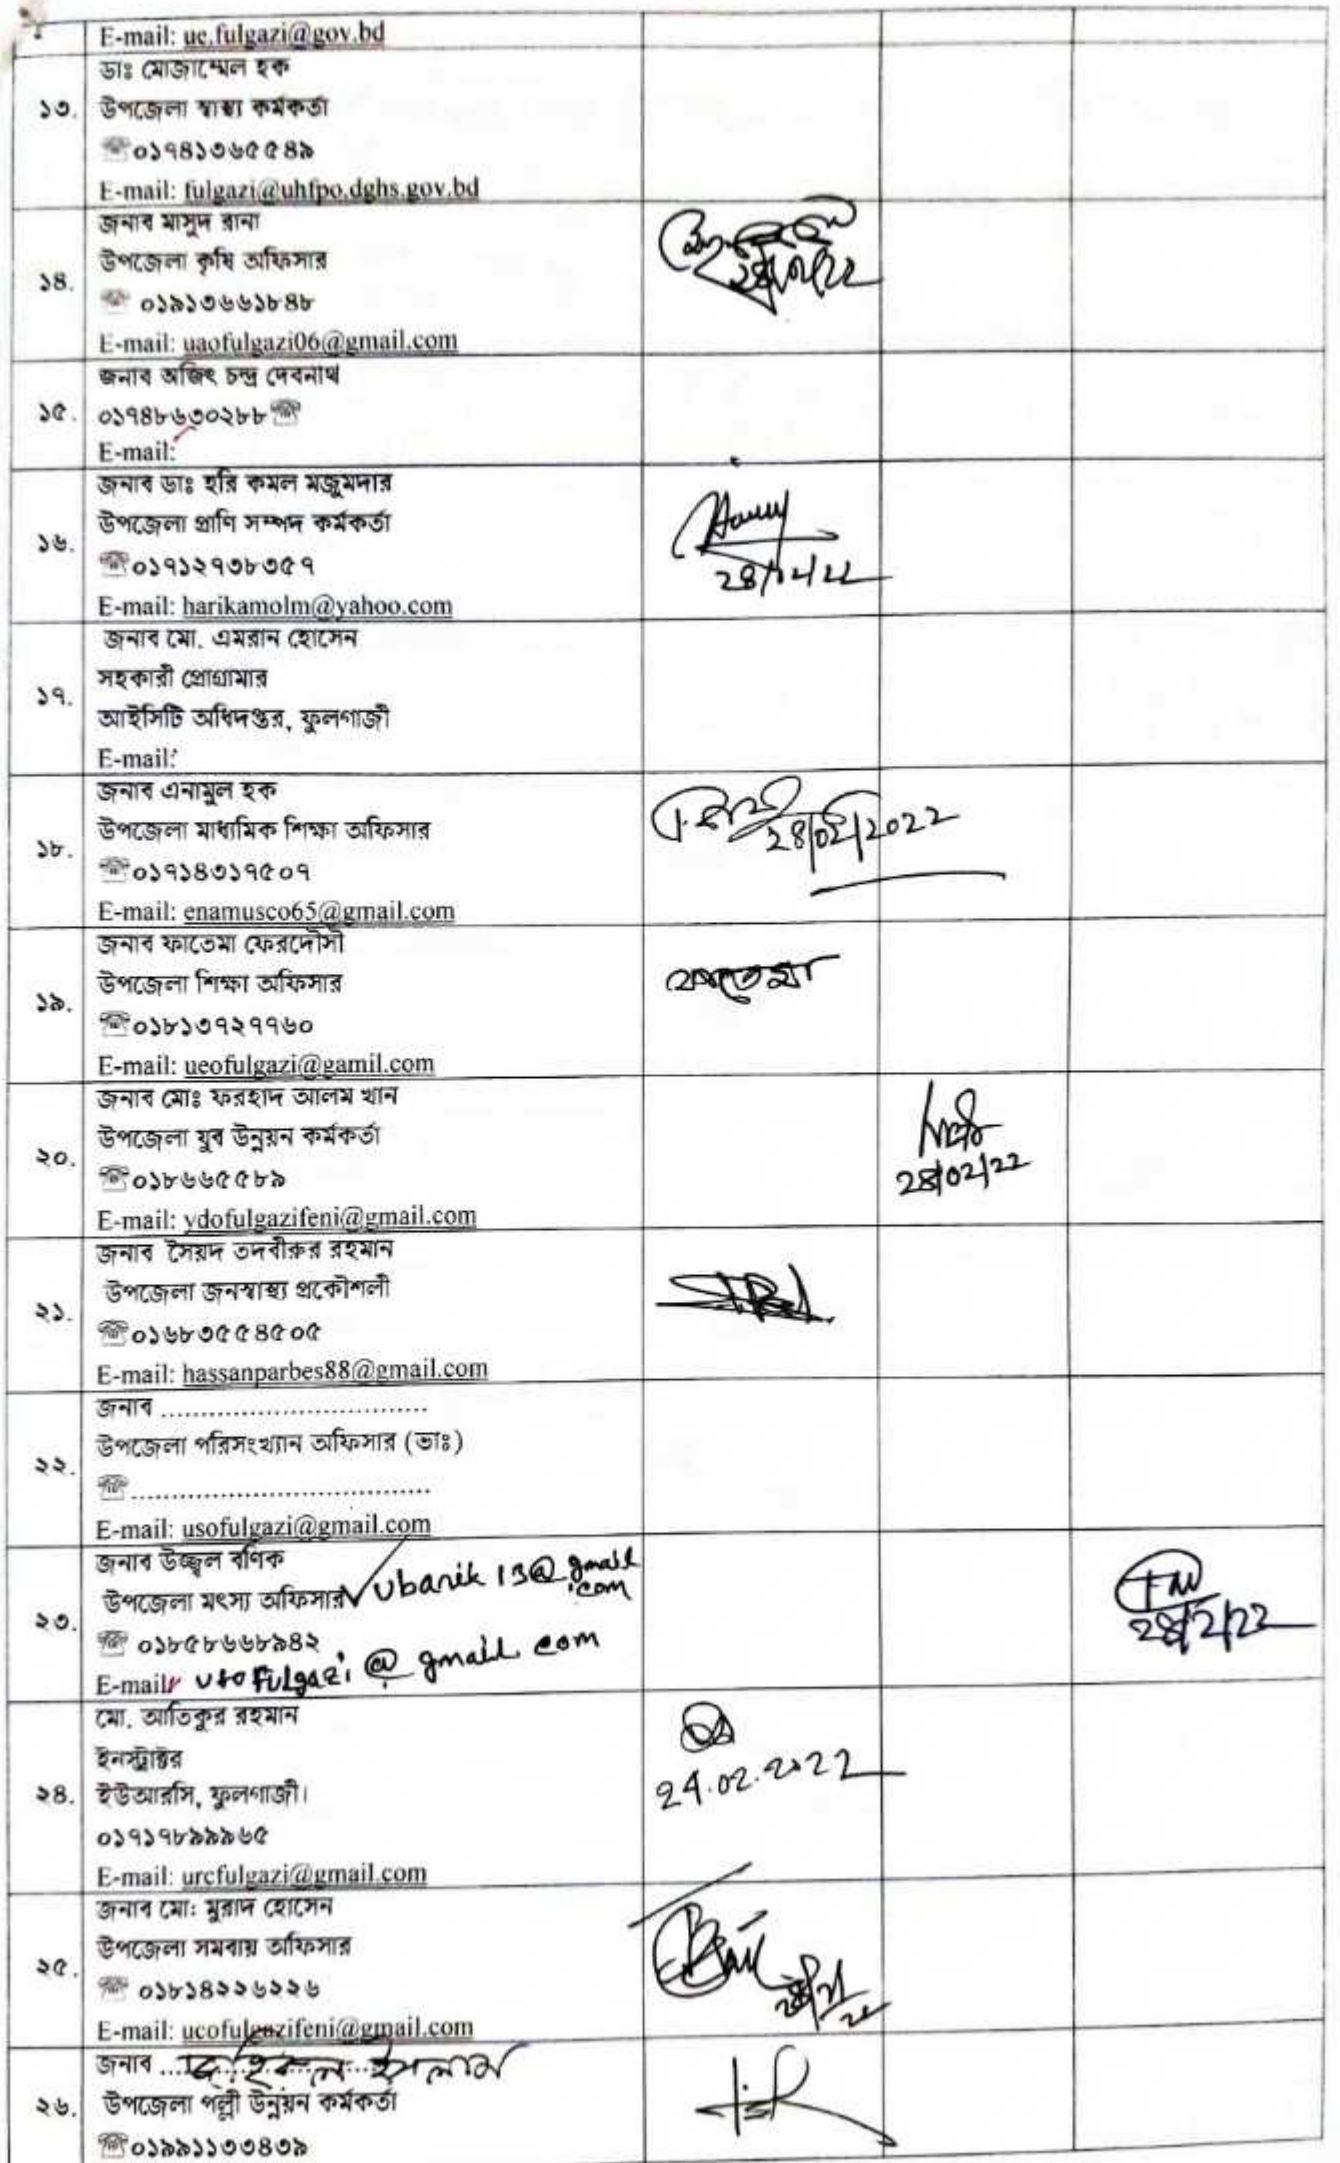 E-mail: ue.fulgazi@gov.bd
ডাঃ মোজাম্মেল হক
১৩. উপজেলা স্বাস্থ্য কর্মকর্তা
☏০১৭৪১৩৬৫৫৪৯
E-mail: fulgazi@uhfpo.dghs.gov.bd
জনাব মাসুদ রানা
উপজেলা কৃষি অফিসার
১৪.
☏ ০১৯১৩৬৬১৮৪৮
E-mail: uaofulgazi06@gmail.com
জনাব অজিৎ চন্দ্র দেবনাথ
১৫. ০১৭৪৮৬৩০২৮৮☏
E-mail:
জনাব ডাঃ হরি কমল মজুমদার
উপজেলা প্রাণি সম্পদ কর্মকর্তা
১৬.
☏০১৭১২৭৩৮৩৫৭
E-mail: harikamolm@yahoo.com
জনাব মো. এমরান হোসেন
সহকারী প্রোগ্রামার
১৭.
আইসিটি অধিদপ্তর, ফুলগাজী
E-mail:
জনাব এনামুল হক
উপজেলা মাধ্যমিক শিক্ষা অফিসার
১৮. 28/02/2022
☏০১৭১৪৩১৭৫০৭
E-mail: enamusco65@gmail.com
জনাব ফাতেমা ফেরদৌসী
ফাতেমা
উপজেলা শিক্ষা অফিসার
১৯.
☏০১৮১৩৭২৭৭৬০
E-mail: ueofulgazi@gamil.com
জনাব মোঃ ফরহাদ আলম খান
উপজেলা যুব উন্নয়ন কর্মকর্তা
২০. 28/02/22
☏০১৮৬৬৫৫৮৯
E-mail: ydofulgazifeni@gmail.com
জনাব সৈয়দ তদবীরুর রহমান
উপজেলা জনস্বাস্থ্য প্রকৌশলী
২১.
☏০১৬৮৩৫৫৪৫০৫
E-mail: hassanparbes88@gmail.com
জনাব ..................................
উপজেলা পরিসংখ্যান অফিসার (ভাঃ)
২২.
☏......................................
E-mail: usofulgazi@gmail.com
জনাব উজ্জ্বল বণিক
উপজেলা মৎস্য অফিসার ubanik13@gmail.com
২৩. 28/2/22
☏ ০১৮৫৮৬৬৮৯৪২
E-mail: ufofulgazi@gmail.com
মো. আতিকুর রহমান
ইনস্ট্রাক্টর
২৪. ইউআরসি, ফুলগাজী। 24.02.2022
০১৭১৭৮৯৯৯৬৫
E-mail: urcfulgazi@gmail.com
জনাব মো: মুরাদ হোসেন
উপজেলা সমবায় অফিসার
২৫.
☏ ০১৮১৪২২৬২২৬
E-mail: ucofulgazifeni@gmail.com
জনাব ইসলাম
২৬. উপজেলা পল্লী উন্নয়ন কর্মকর্তা
☏০১৯৯১১৩৩৪৩৯